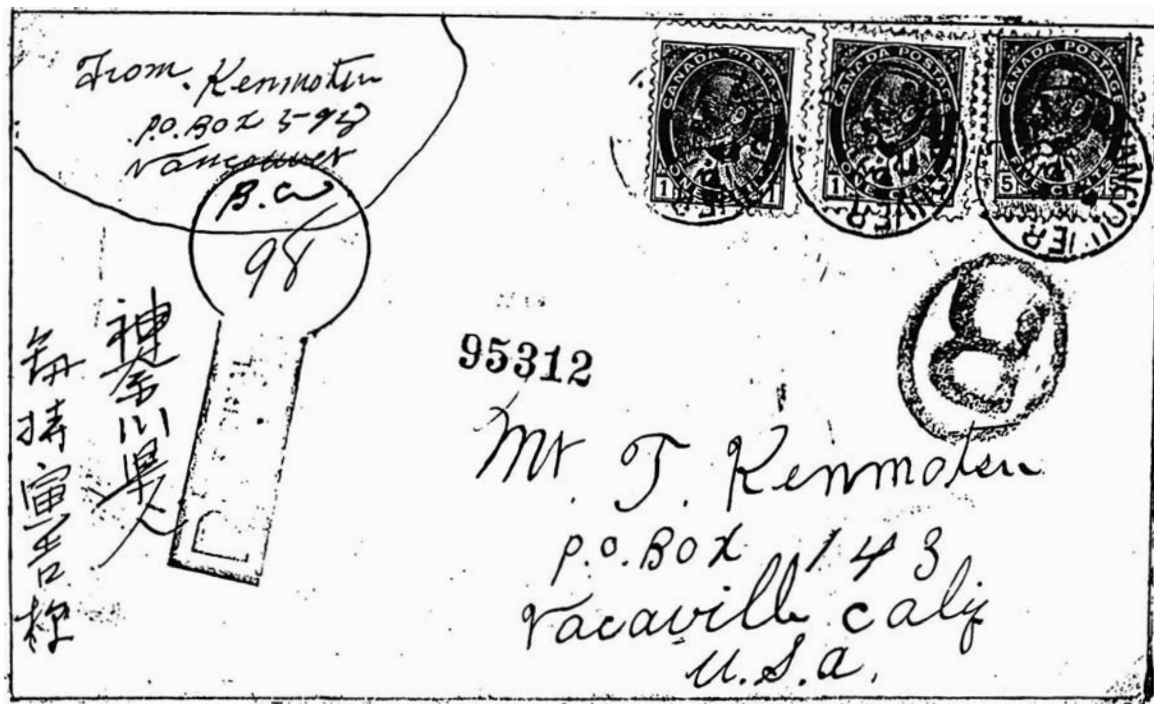 From. Kenmotsu
P.O. BOX 593
Vancouver
B.C.
98
CANADA POSTAGE
1 ONE CENT 1
CANADA POSTAGE
1 ONE CENT 1
CANADA POSTAGE
5 FIVE CENTS 5
VANCOUVER
95312
R
Mr. T. Kenmotsu
P.O. BOX 143
Vacaville Calif
U.S.A.
神奈川県人
釼持寅吉様